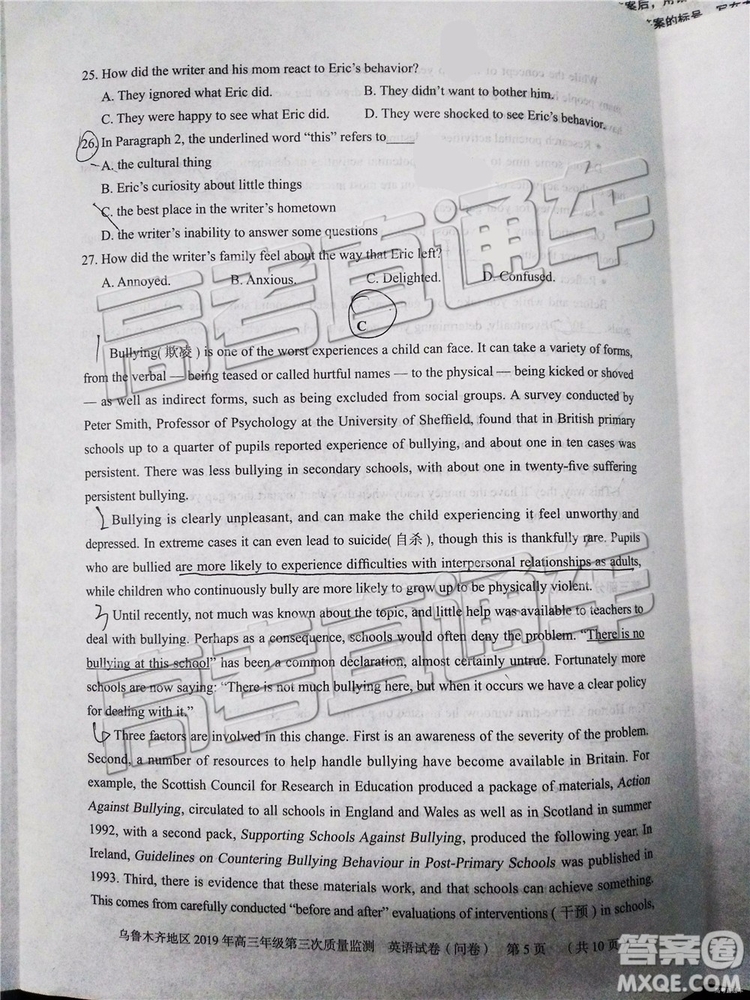 案后，用
答案的标号
25. How did the writer and his mom react to Eric's behavior?
A. They ignored what Eric did. B. They didn't want to bother him.
C. They were happy to see what Eric did. D. They were shocked to see Eric's behavior.
26. In Paragraph 2, the underlined word "this" refers to____
A. the cultural thing
B. Eric's curiosity about little things
C. the best place in the writer's hometown
D. the writer's inability to answer some questions
27. How did the writer's family feel about the way that Eric left?
A. Annoyed. B. Anxious. C. Delighted. D. Confused.
C
1 Bullying(欺凌) is one of the worst experiences a child can face. It can take a variety of forms,
from the verbal — being teased or called hurtful names — to the physical — being kicked or shoved
— as well as indirect forms, such as being excluded from social groups. A survey conducted by
Peter Smith, Professor of Psychology at the University of Sheffield, found that in British primary
schools up to a quarter of pupils reported experience of bullying, and about one in ten cases was
persistent. There was less bullying in secondary schools, with about one in twenty-five suffering
persistent bullying.
2 Bullying is clearly unpleasant, and can make the child experiencing it feel unworthy and
depressed. In extreme cases it can even lead to suicide(自杀), though this is thankfully rare. Pupils
who are bullied are more likely to experience difficulties with interpersonal relationships as adults,
while children who continuously bully are more likely to grow up to be physically violent.
3 Until recently, not much was known about the topic, and little help was available to teachers to
deal with bullying. Perhaps as a consequence, schools would often deny the problem. "There is no
bullying at this school" has been a common declaration, almost certainly untrue. Fortunately more
schools are now saying: "There is not much bullying here, but when it occurs we have a clear policy
for dealing with it."
4 Three factors are involved in this change. First is an awareness of the severity of the problem.
Second, a number of resources to help handle bullying have become available in Britain. For
example, the Scottish Council for Research in Education produced a package of materials, Action
Against Bullying, circulated to all schools in England and Wales as well as in Scotland in summer
1992, with a second pack, Supporting Schools Against Bullying, produced the following year. In
Ireland, Guidelines on Countering Bullying Behaviour in Post-Primary Schools was published in
1993. Third, there is evidence that these materials work, and that schools can achieve something.
This comes from carefully conducted "before and after" evaluations of interventions(干预) in schools,
乌鲁木齐地区2019年高三年级第三次质量监测 英语试卷(问卷) 第5页 (共10页
高考直通车
高考直通车
高考直通车
答案圈
MXQE.COM